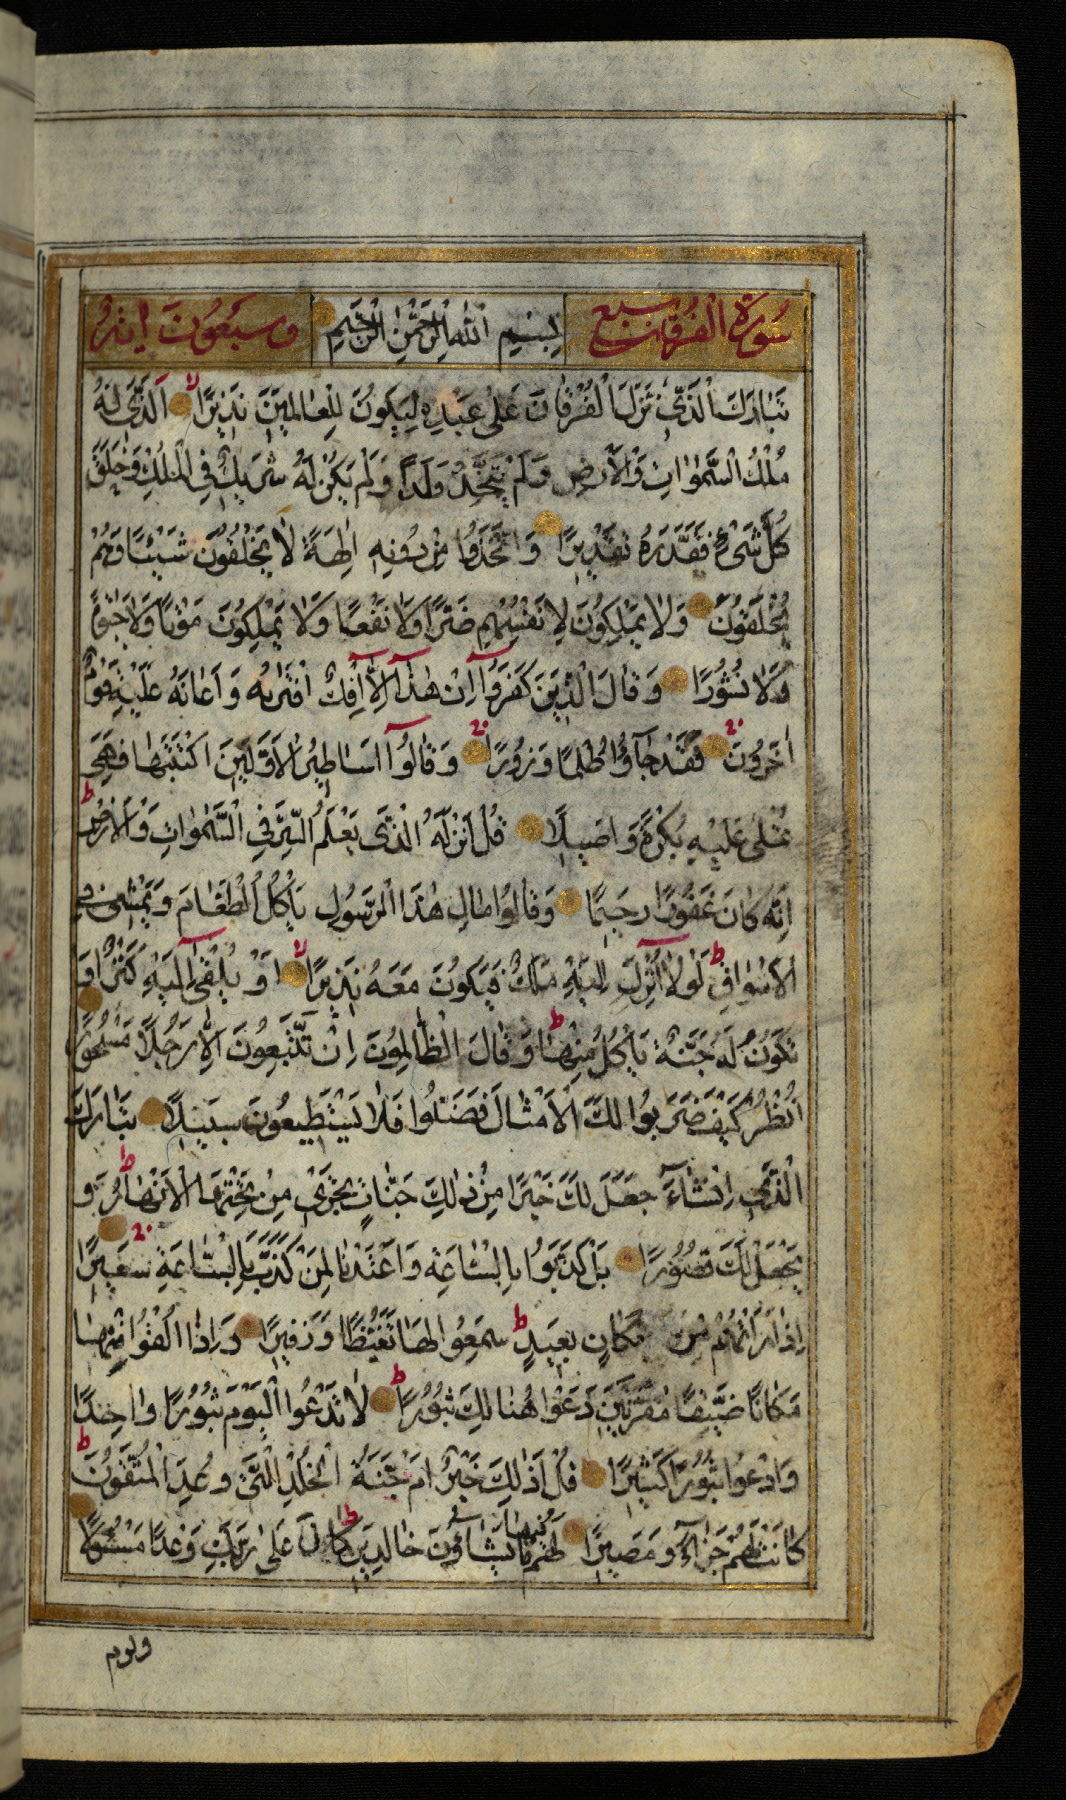 سُورَةُ الْفُرْقَانِ سبع بِسْمِ اللّٰهِ الرَّحْمٰنِ الرَّحِيمِ وَسَبْعُونَ ايَةً
تَبَارَكَ الَّذِي نَزَّلَ الْفُرْقَانَ عَلىٰ عَبْدِهِ لِيَكُونَ لِلْعَالَمِينَ نَذِيرًا ۙ اَلَّذِي لَهُ
مُلْكُ السَّمٰوَاتِ وَالْاَرْضِ وَلَمْ يَتَّخِذْ وَلَدًا وَلَمْ يَكُنْ لَهُ شَرِيكٌ فِي الْمُلْكِ وَخَلَقَ
كُلَّ شَيْءٍ فَقَدَّرَهُ تَقْدِيرًا وَاتَّخَذُوا مِنْ دُونِهِ اٰلِهَةً لَا يَخْلُقُونَ شَيْئًا وَهُمْ
يُخْلَقُونَ وَلَا يَمْلِكُونَ لِاَنْفُسِهِمْ ضَرًّا وَلَا نَفْعًا وَلَا يَمْلِكُونَ مَوْتًا وَلَا حَيٰوةً
وَلَا نُشُورًا وَقَالَ الَّذِينَ كَفَرُوٓا اِنْ هٰذَآ اِلَّآ اِفْكٌ افْتَرٰىهُ وَاَعَانَهُ عَلَيْهِ قَوْمٌ
اٰخَرُونَ فَقَدْ جَآؤُا ظُلْمًا وَزُورًا وَقَالُوٓا اَسَاطِيرُ الْاَوَّلِينَ اكْتَتَبَهَا فَهِيَ
تُمْلىٰ عَلَيْهِ بُكْرَةً وَاَصِيلًا قُلْ اَنْزَلَهُ الَّذِي يَعْلَمُ السِّرَّ فِي السَّمٰوَاتِ وَالْاَرْضِ ط
اِنَّهُ كَانَ غَفُورًا رَحِيمًا وَقَالُوا مَالِ هٰذَا الرَّسُولِ يَأْكُلُ الطَّعَامَ وَيَمْشِي فِي
الْاَسْوَاقِ ط لَوْلَآ اُنْزِلَ اِلَيْهِ مَلَكٌ فَيَكُونَ مَعَهُ نَذِيرًا ۙ اَوْ يُلْقٰىٓ اِلَيْهِ كَنْزٌ اَوْ
تَكُونُ لَهُ جَنَّةٌ يَأْكُلُ مِنْهَا ط وَقَالَ الظَّالِمُونَ اِنْ تَتَّبِعُونَ اِلَّا رَجُلًا مَسْحُورًا
اُنْظُرْ كَيْفَ ضَرَبُوا لَكَ الْاَمْثَالَ فَضَلُّوا فَلَا يَسْتَطِيعُونَ سَبِيلًا تَبَارَكَ
الَّذِي اِنْ شَآءَ جَعَلَ لَكَ خَيْرًا مِنْ ذٰلِكَ جَنَّاتٍ تَجْرِي مِنْ تَحْتِهَا الْاَنْهَارُ وَ
يَجْعَلْ لَكَ قُصُورًا بَلْ كَذَّبُوا بِالسَّاعَةِ وَاَعْتَدْنَا لِمَنْ كَذَّبَ بِالسَّاعَةِ سَعِيرًا
اِذَا رَاَتْهُمْ مِنْ مَكَانٍ بَعِيدٍ ط سَمِعُوا لَهَا تَغَيُّظًا وَزَفِيرًا وَاِذَا اُلْقُوا مِنْهَا
مَكَانًا ضَيِّقًا مُقَرَّنِينَ دَعَوْا هُنَالِكَ ثُبُورًا ط لَا تَدْعُوا الْيَوْمَ ثُبُورًا وَاحِدًا
وَادْعُوا ثُبُورًا كَثِيرًا قُلْ اَذٰلِكَ خَيْرٌ اَمْ جَنَّةُ الْخُلْدِ الَّتِي وُعِدَ الْمُتَّقُونَ ط
كَانَتْ لَهُمْ جَزَآءً وَمَصِيرًا لَهُمْ فِيهَا مَا يَشَاؤُنَ خَالِدِينَ ط كَانَ عَلىٰ رَبِّكَ وَعْدًا مَسْئُولًا
ويوم